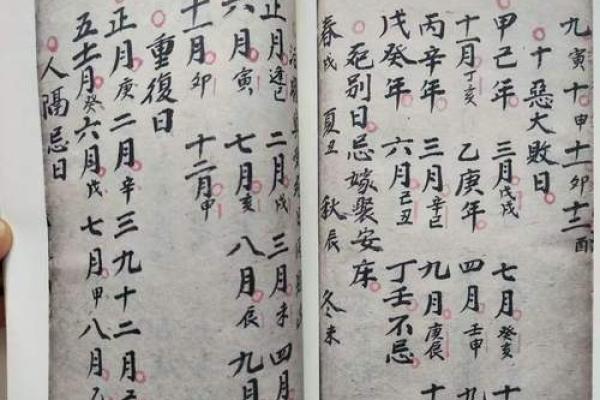 九寅十申十一卯十二酉
十惡大敗日
甲己年 三月戊戌 七月癸亥 十
十一月丁亥 乙庚年 四月壬申 九
丙辛年 三月辛巳 九月庚辰 十
戊癸年 六月己丑 丁壬不忌
死别日忌嫁娶安床
春戌 夏丑 秋辰 冬未
正月逢巳 二月戌 三月未 四月
六月寅 七月亥 八月辰 九月
十一月卯 十二月申
重復日
正月庚 二月辛 三九十二月
五十一月癸 六月戊 七月甲 八月乙
人隔忌日